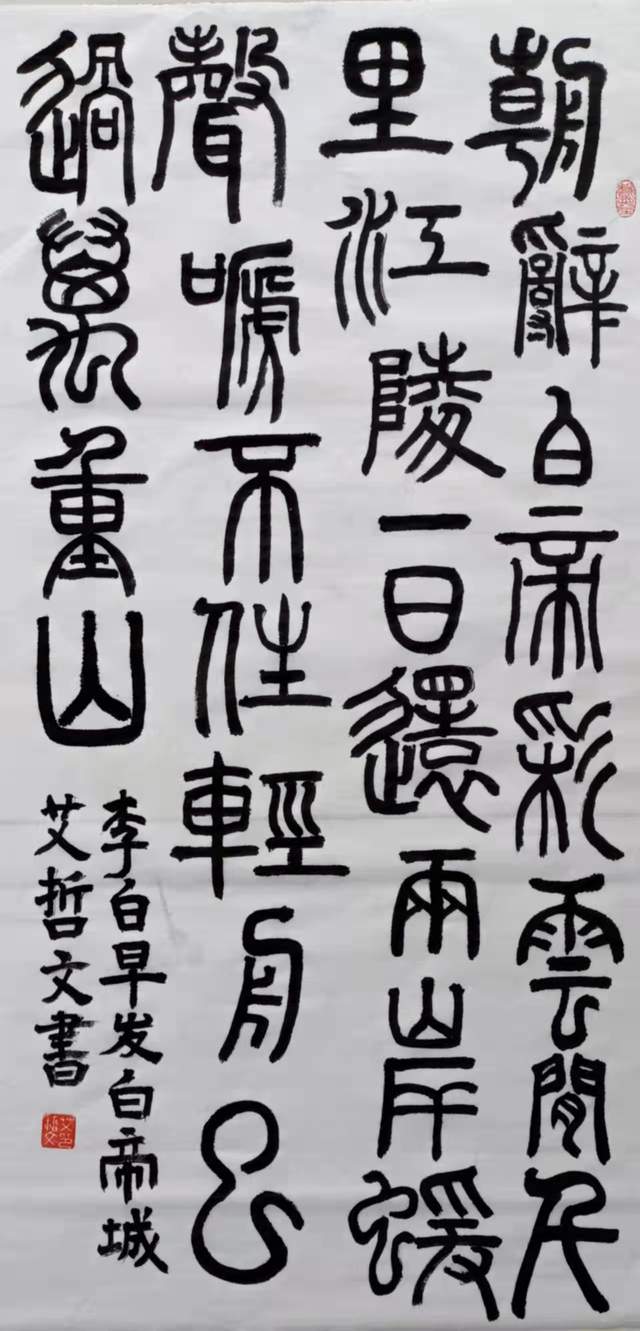 朝辭白帝彩雲間千
里江陵一日還兩岸蝯
聲嗁不住輕舟已
過萬重山
李白早发白帝城
艾哲文書